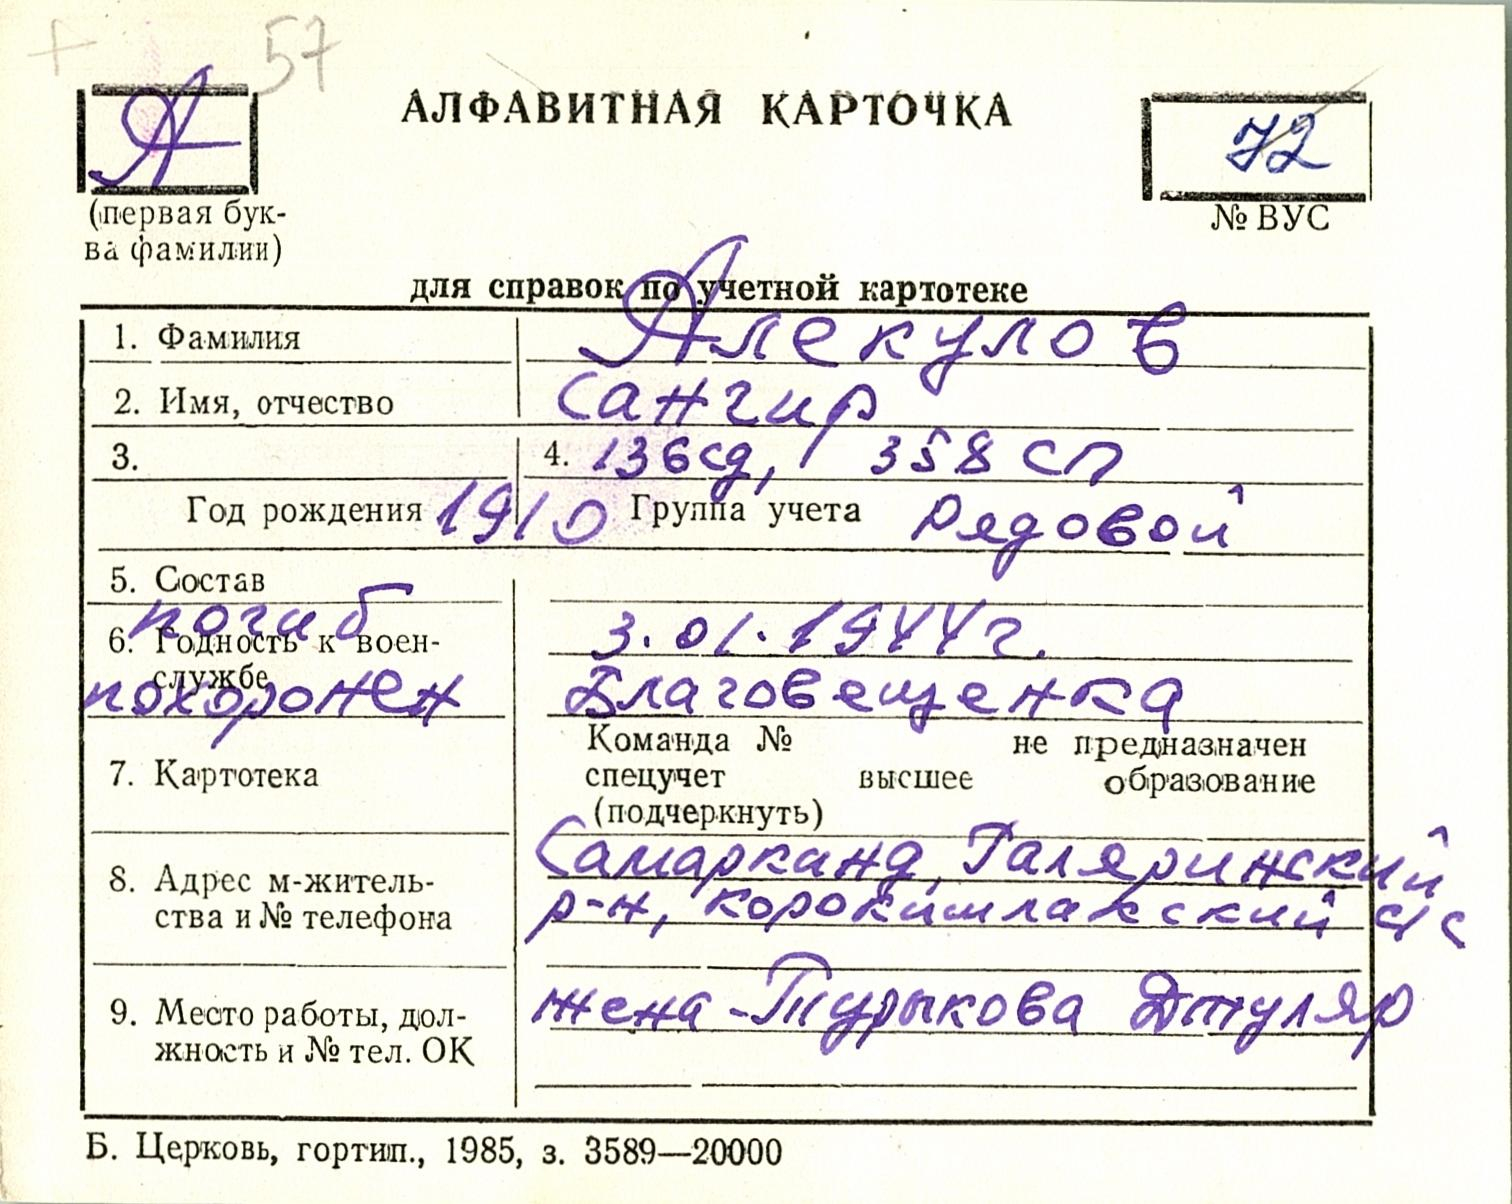 57
А
АЛФАВИТНАЯ КАРТОЧКА
72
(первая бук-
ва фамилии)
№ ВУС
для справок по учетной картотеке
1. Фамилия Алекулов
2. Имя, отчество Сангир
3. 4. 136сд, 358 сп
Год рождения 1910 Группа учета Рядовой
5. Состав
погиб 3.01.1944г.
6. Годность к воен-
службе
похоронен Благовещенка
Команда № не предназначен
7. Картотека спецучет высшее образование
(подчеркнуть)
Самарканд, Галяринский
8. Адрес м-житель-
ства и № телефона р-н, корокишлакский с/с
9. Место работы, дол- жена - Турыкова Дтуляр
жность и № тел. ОК
Б. Церковь, гортип., 1985, з. 3589—20000